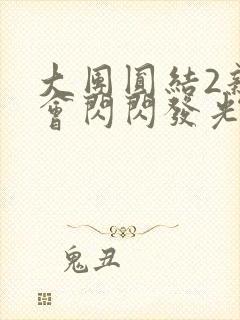 大團圓結2新
會閃閃發光
鬼丑